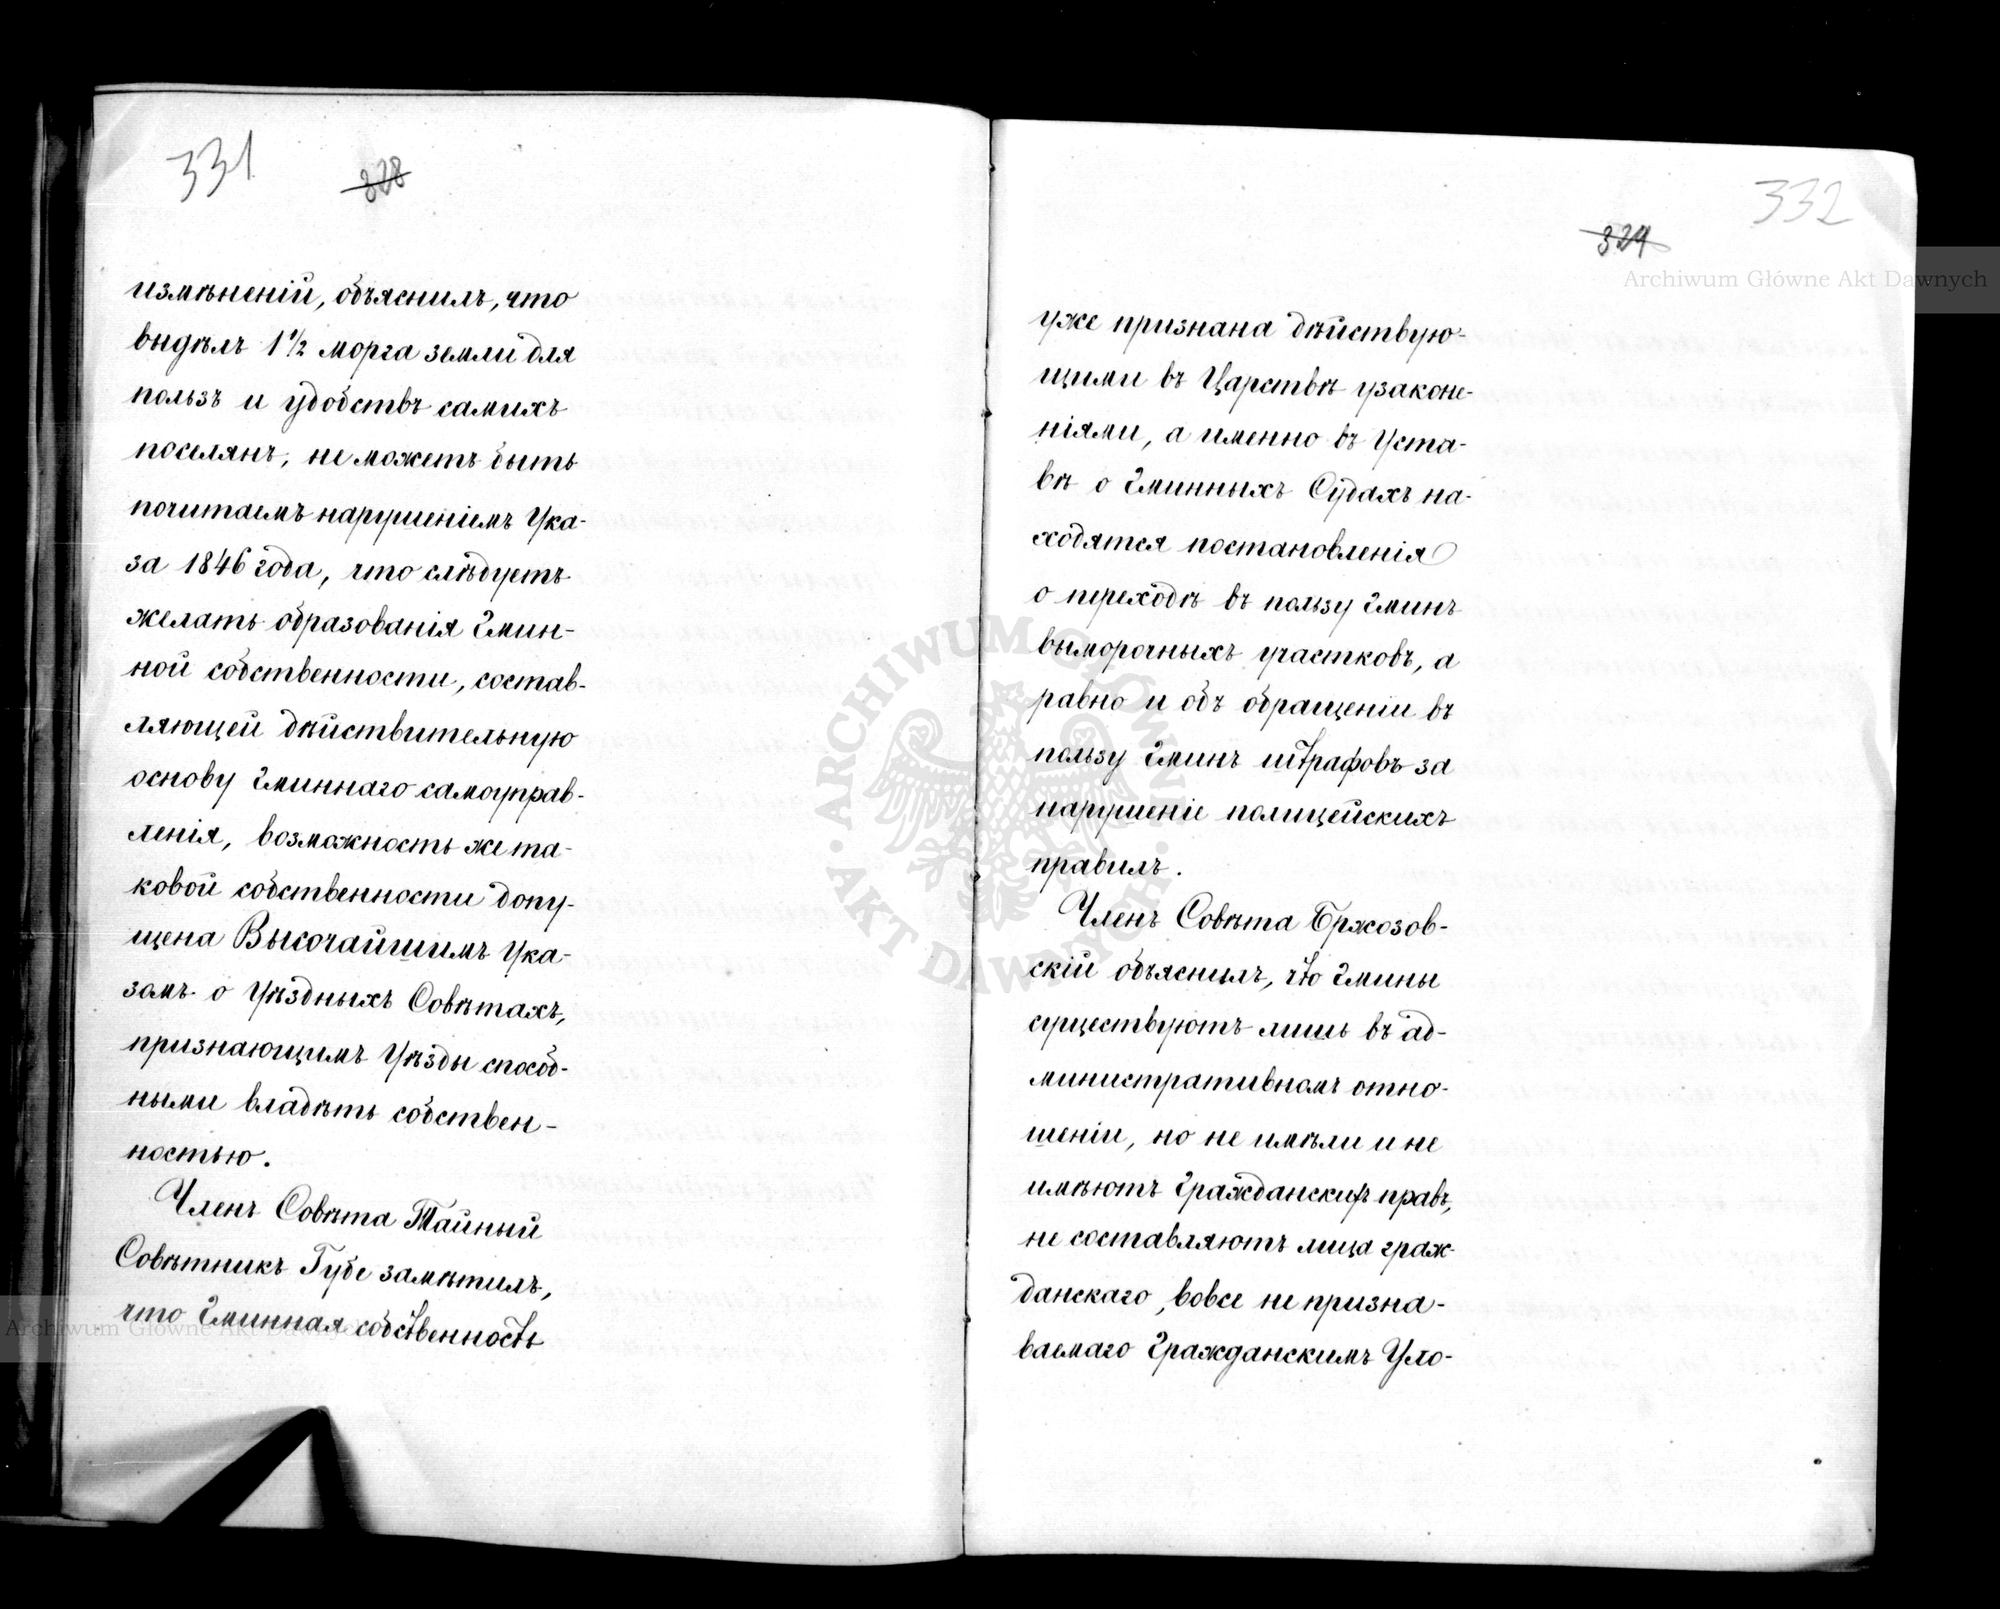 331
328
измѣненій, объяснилъ, что
выдѣлъ 1 1/2 морга земли для
пользъ и удобствъ самихъ
поселянъ, не можетъ быть
почитаемъ нарушеніемъ Ука-
за 1846 года, что слѣдуетъ
желать образованія Гмин-
ной собственности, состав-
ляющей дѣйствительную
основу Гминнаго самоуправ-
ленія, возможность же та-
ковой собственности допу-
щена Высочайшимъ Ука-
замъ о Уѣздныхъ Совѣтахъ,
признающимъ Уѣзды способ-
ными владѣть собствен-
ностью.
Членъ Совѣта Тайный
Совѣтникъ Губе замѣтилъ,
что Гминная собственность
332
329
уже признана дѣйствую-
щими въ Царствѣ узаконе-
ніями, а именно въ Уста-
вѣ о Гминныхъ Судахъ на-
ходятся постановленія
о переходѣ въ пользу Гминъ
выморочныхъ участковъ, а
равно и объ обращеніи въ
пользу Гминъ штрафовъ за
нарушеніе полицейскихъ
правилъ.
Членъ Совѣта Бржозов-
скій объяснилъ, что Гмины
существуютъ лишь въ ад-
министративномъ отно-
шеніи, но не имѣли и не
имѣютъ Гражданскихъ правъ,
не составляютъ лица граж-
данскаго, вовсе не призна-
ваемаго Гражданскимъ Уло-
Archiwum Główne Akt Dawnych
Archiwum Główne Akt Dawnych
ARCHIWUM GŁÓWNE · AKT DAWNYCH ·